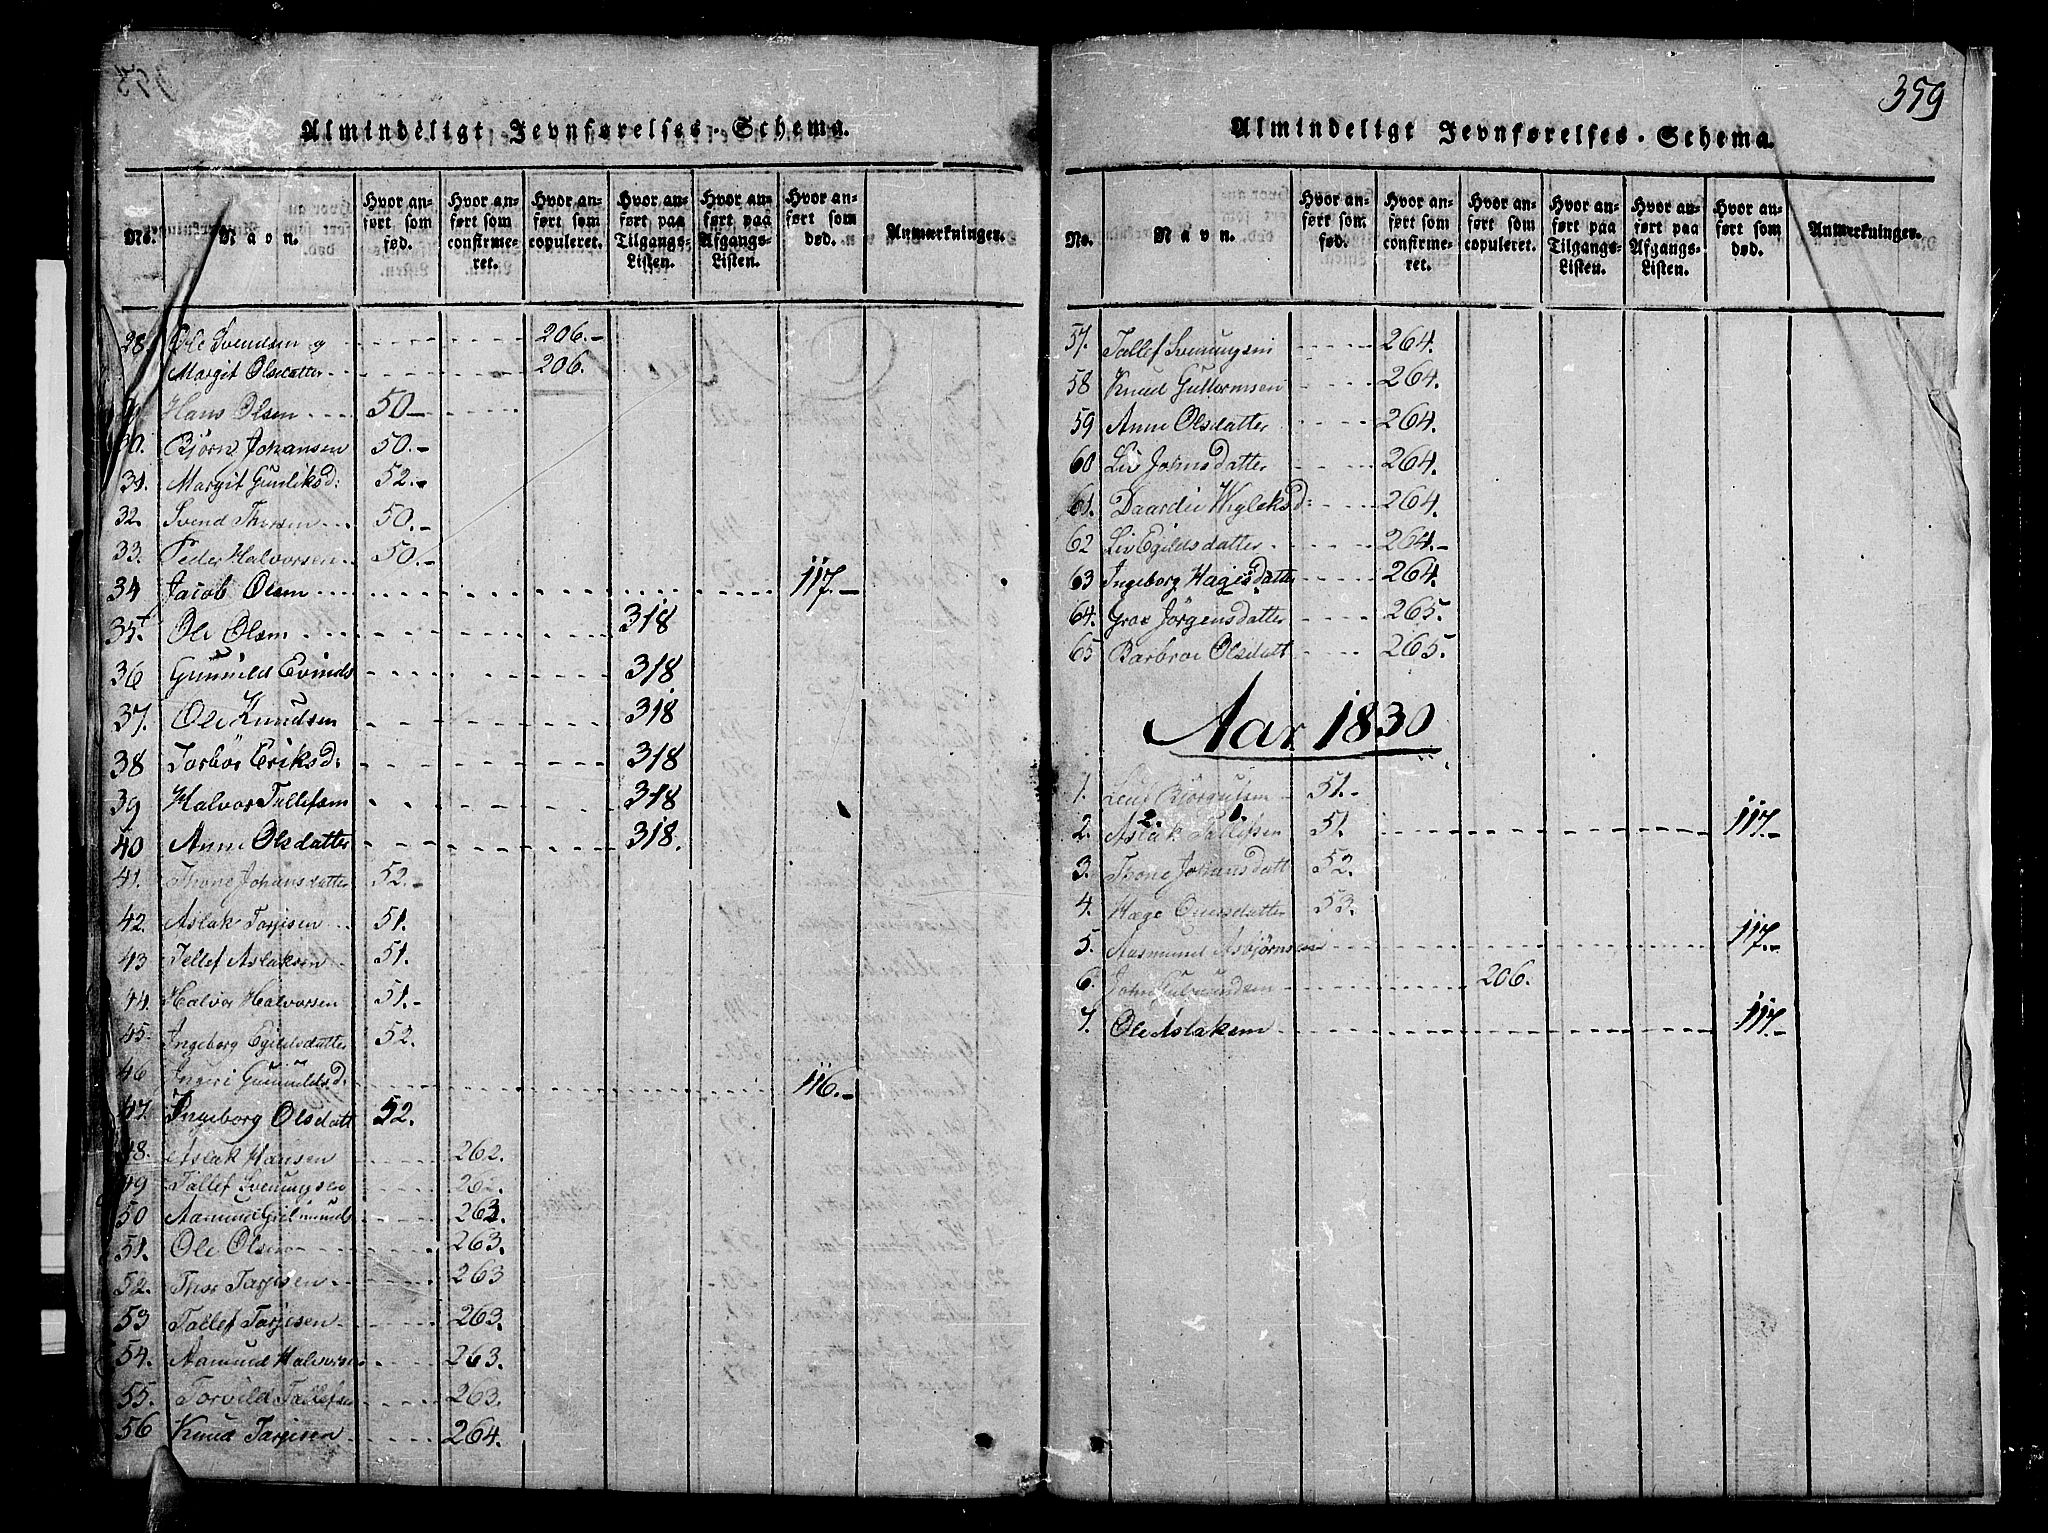 Almindeligt Jevnførelses-Schema.
No.
Navn.
Hvor anført som fød.
Hvor anført som confirmeret.
Hvor anført som copuleret.
Hvor anført paa Tilgangs-Listen.
Hvor anført paa Afgangs-Listen.
Hvor anført som død.
Anmærkninger.
28 Ole Svendsen og 206.
Margit Olsdatter 206.
Hans Olsen 50
30. Björn Johansen 50.
31. Margit Gunliksd: 52.
32. Svend 50.
33. Peder Halvorsen 50.
34 Jacob Olsen 117.
35. Ole Olsen 318
36 Gunnild Evinds 318
37. Ole Knudsen 318
38 Torbör Eriksd: 318
39 Halvor Tallefsen 318
40 Anne Olsdatter 318.
41. Thone Johansdatter 52.
42. Aslak Torjisen 51.
43 Tellef Aslaksen 51.
44. Halvor Halvorsen 51.
45. Ingeborg Egildsdatter 52.
46 Ingeri Gunnuldsd. 116.
47. Ingeborg Olsdatt 52.
48. Aslak Hansen 262.
49 Tallef Svenungsen 262.
50 Aamund 263.
51. Ole Olsen 263.
52. Thor Tarjisen 263
53 Tallef Tarjisen 263.
54. Aamund Halvorsen 263.
55. Torvild Tallefsen 263.
56 Knud Tarjisen 264.
359
Almindeligt Jevnførelses-Schema.
No.
Navn.
Hvor anført som fød.
Hvor anført som confirmeret.
Hvor anført som copuleret.
Hvor anført paa Tilgangs-Listen.
Hvor anført paa Afgangs-Listen.
Hvor anført som død.
Anmærkninger.
57. Tallef Svenungsen 264.
58 Knud Guttormsen 264.
59 Anne Olsdatter 264.
60 Liv Johnsdatter 264.
61. Daardei 264.
62 Liv Egildsdatter 264.
63 Ingeborg Hagesdatter 264.
64. Groe Jörgensdatter 265.
65 Barbroe Olsdatt 265.
Aar 1830
1. Björgulsen 51.
2. Aslak Tallefsen 51. 117.
3. Thone Johansdatt 52.
4. Hæge 53.
5. Aasmund Asbjörnsen 117.
6. John 206.
7. Ole Aslaksen 117.